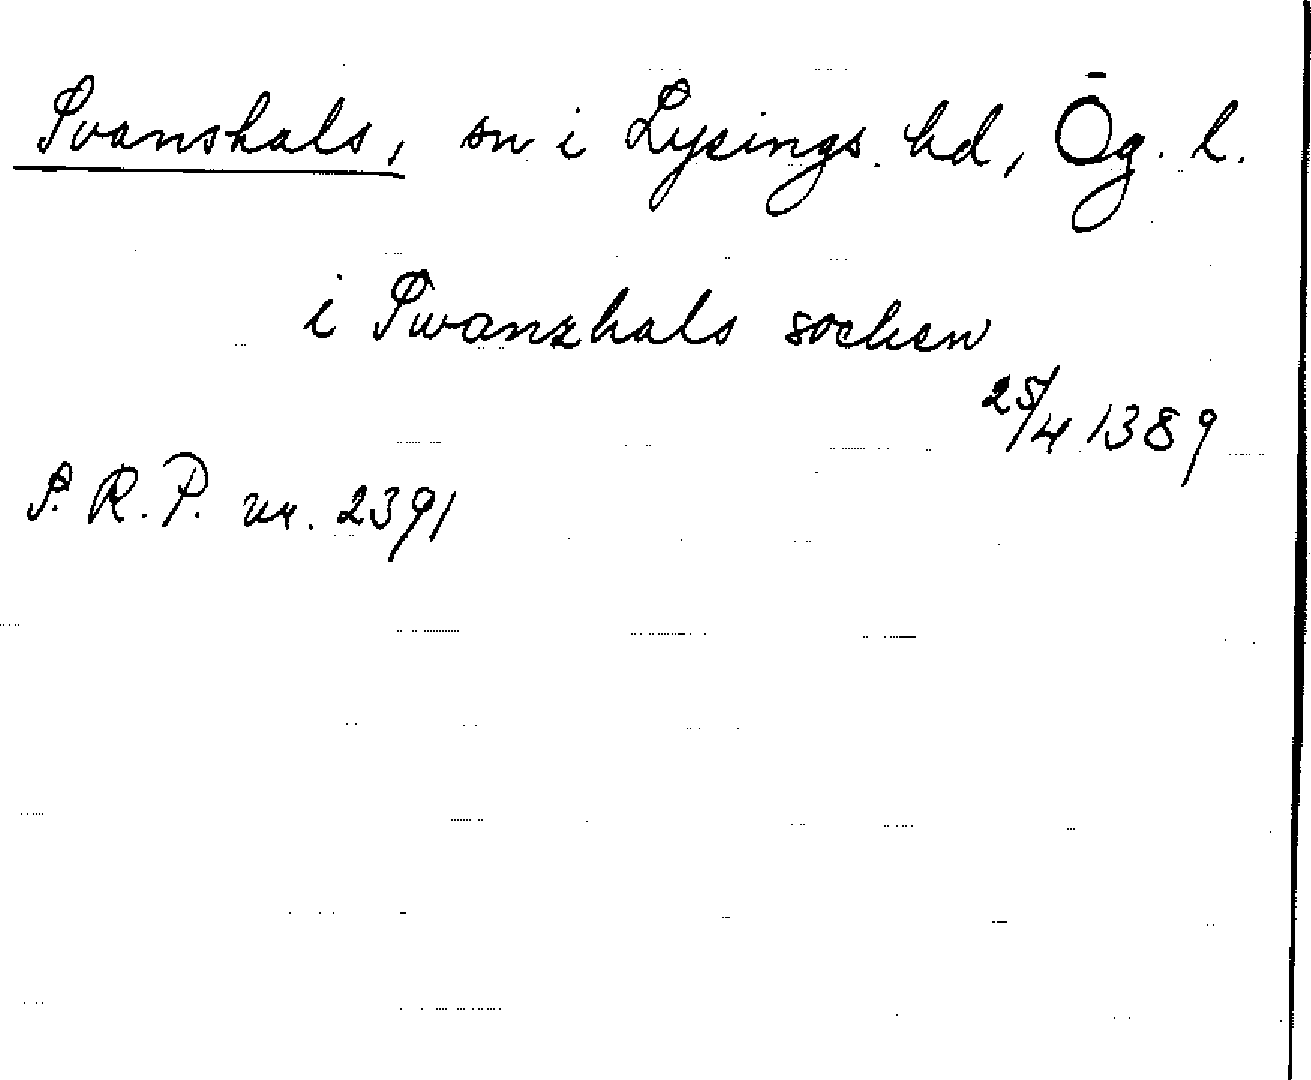 Svanshals, sn i Lysings hd, Ög. l.
i Swanzhals socken
25/4 1389
S. R. P. nr. 2391